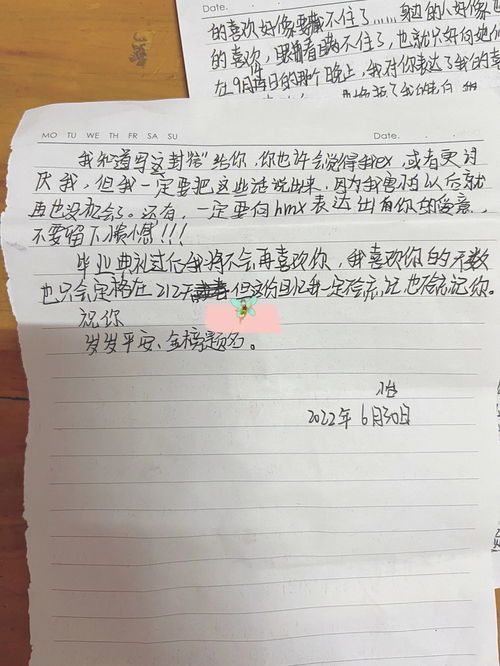 Date.
的喜欢好像要藏不住了......身边的人好像也
的喜欢,眼看着瞒不住了,也就只好向她们
在9月 日的那个晚上,我对你表达了我的喜
MO TU WE TH FR SA SU Date.
我知道写这封“信”给你,你也许会觉得我ex,或者更讨
厌我,但我一定要把这些话说出来,因为我害怕以后就
再也没机会了。还有,一定要向hmx表达出有你的爱意,
不要留下遗憾!!!
毕业典礼过后我将不会再喜欢你,我喜欢你的天数
也只会定格在212天 但这份回忆我一定不会忘记也不会忘记你。
祝你
岁岁平安、金榜题名。
2022年 6月30日